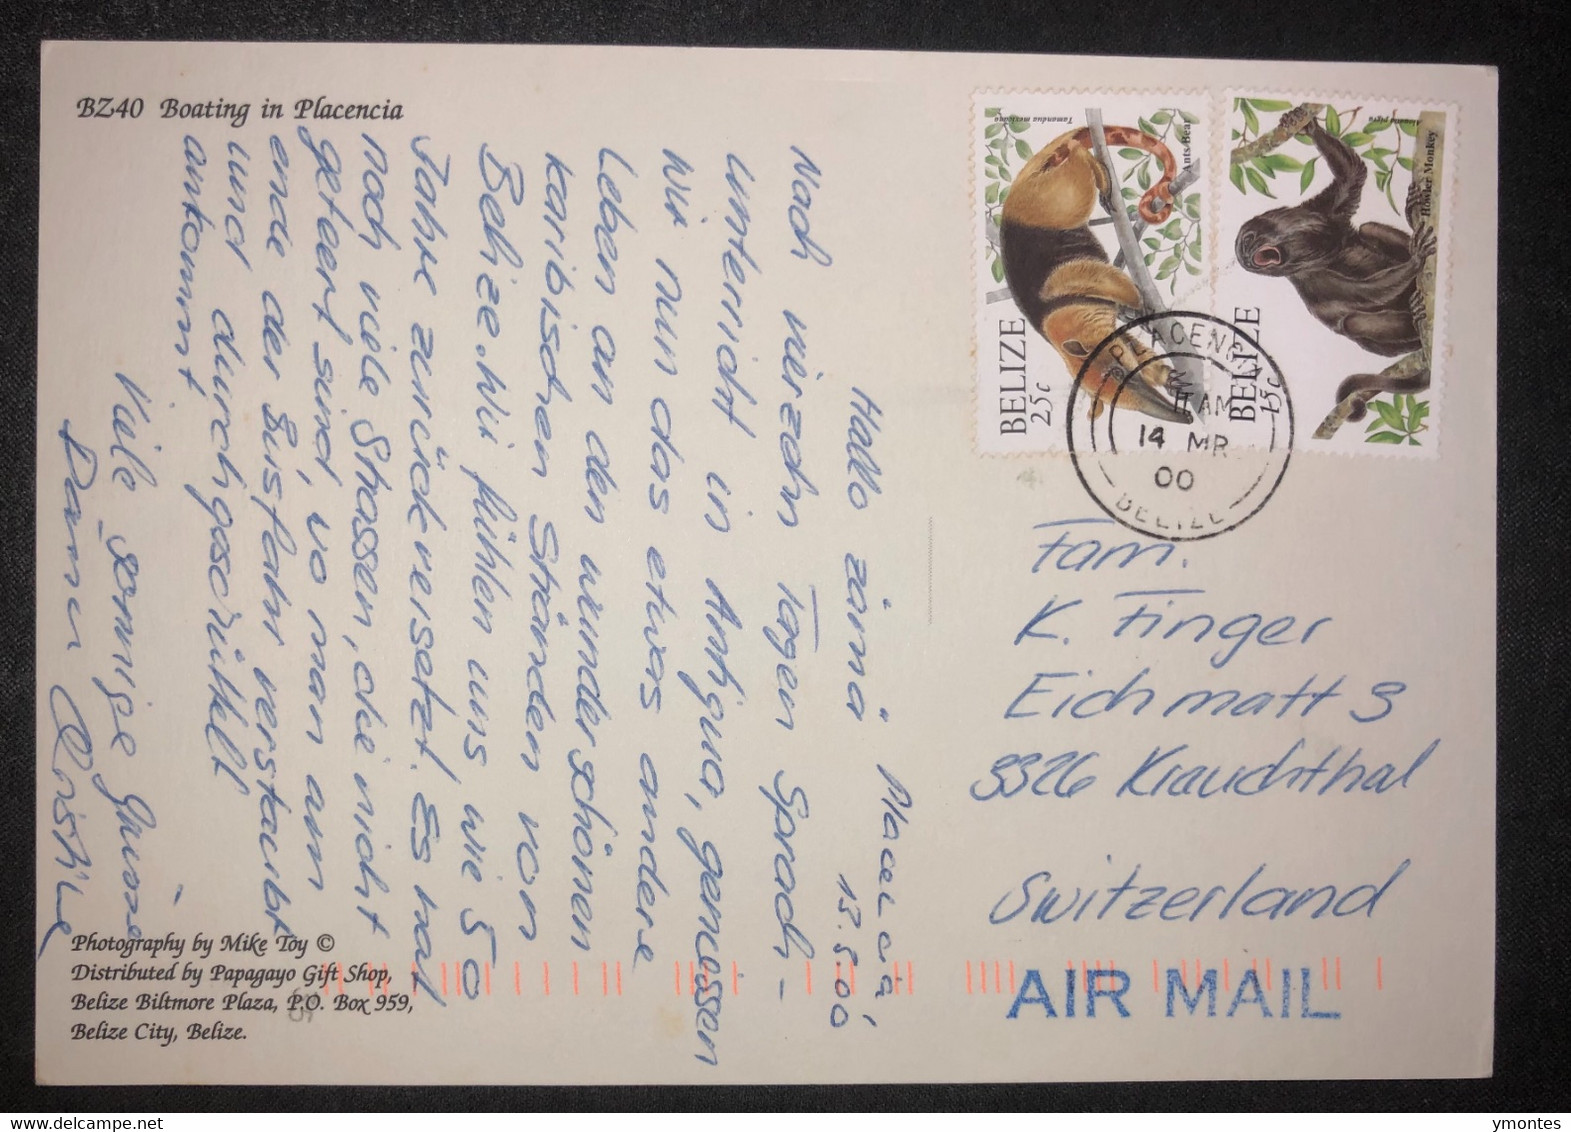 BZ40 Boating in Placencia
Placencia,
13.3.00
Hallo zämä
Nach vierzehn Tagen Sprach-
unterricht in Antigua, geniessen
wir nun das etwas andere
Leben an den wunderschönen
karibischen Stränden von
Belize. Wir fühlen uns wie 50
Jahre zurückversetzt. Es hat
noch viele Strassen, die nicht
geteert sind, wo man am
ende der Busfahrt verstaubt
und durchgeschüttelt
ankommt.
Viele sonnige Grüsse
Photography by Mike Toy ©
Distributed by Papagayo Gift Shop,
Belize Biltmore Plaza, P.O. Box 959,
Belize City, Belize.
Tamandua mexicana
Ants Bear
BELIZE
25c
Alouatta pigra
Howler Monkey
BELIZE
15c
PLACENCIA
AM
14 MR
00
BELIZE
Fam.
K. Finger
Eichmatt 3
3326 Krauchthal
Switzerland
AIR MAIL
ymontes